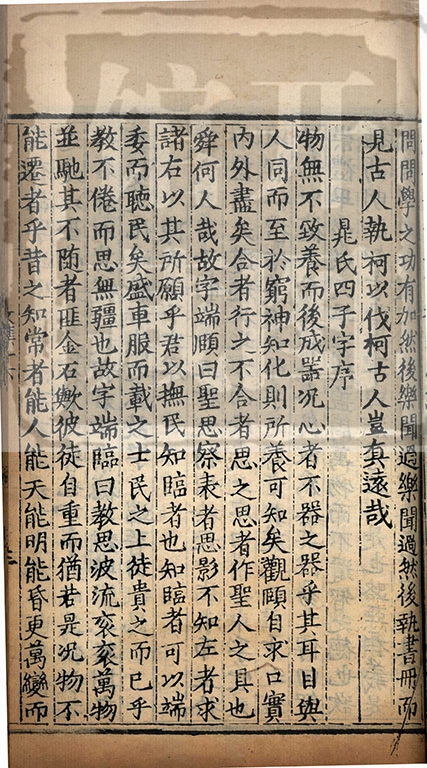 問問學之功有加然後樂聞過樂聞過然後執書冊而
見古人執柯以伐柯古人豈真遠哉
晁氏四子字序
物無不致養而後成器況心者不器之器乎其耳目與
人同而至於窮神知化則所養可知矣觀頤自求口實
內外盡矣合者行之不合者思之思者作聖人之具也
舜何人哉故字端頤曰聖思察表者思影不知左者求
諸右以其所願乎君以撫民知臨者也知臨者可以端
委而聽民矣盛車服而載之士民之上徒貴之而已乎
教不倦而思無疆也故字端臨曰教思波流袞袞萬物
並馳其不隨者匪金石歟彼徒自重而猶若是況物不
能遷者乎昔之知常者能人能天能明能昏更萬變而